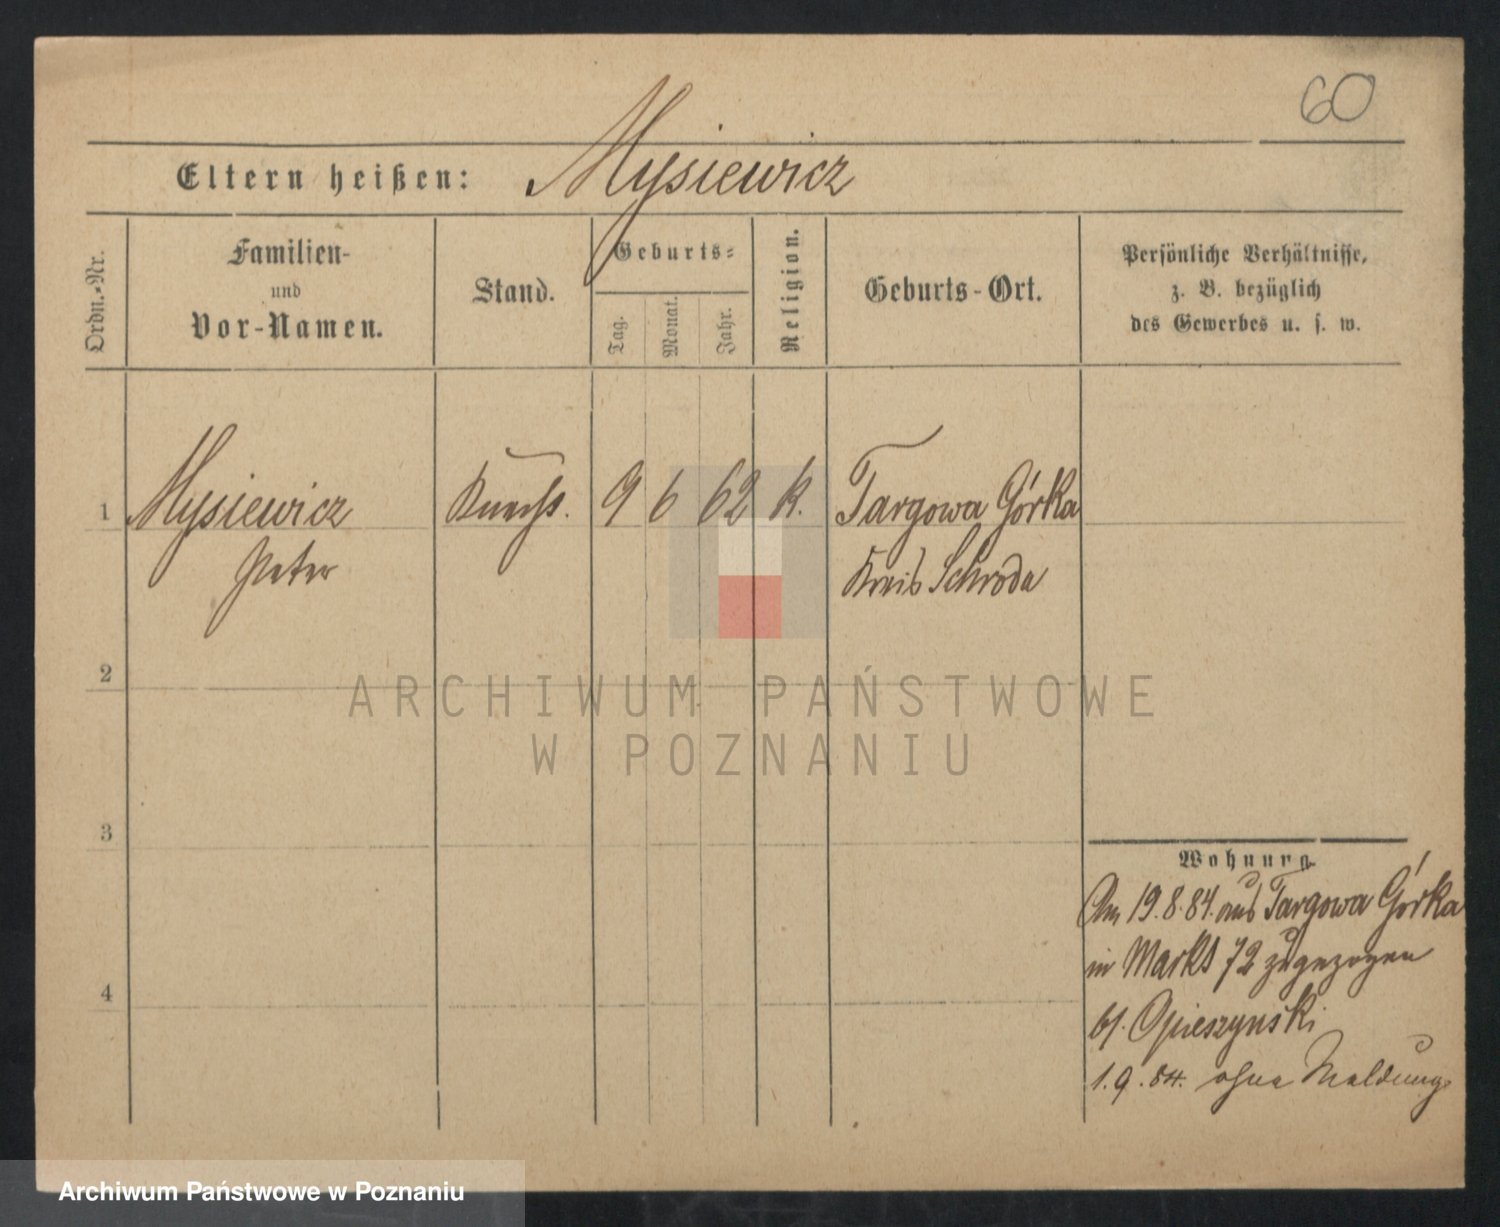 60
Eltern heißen: Mysiewicz
Ordn.-Nr.
Familien-
und
Vor-Namen.
Stand.
Geburts-
Tag.
Monat.
Jahr.
Religion.
Geburts-Ort.
Persönliche Verhältnisse,
z. B. bezüglich
des Gewerbes u. s. w.
1 Mysiewicz Knecht. 9 6 62 k. Targowa Górka
Peter Kreis Schroda
2
3
4
Wohnung.
Am 19.8.84. aus Targowa Górka
in Markt 72 zugezogen
bf. Opieszynski
1.9.84. ohne Meldung
ARCHIWUM PAŃSTWOWE
W POZNANIU
Archiwum Państwowe w Poznaniu